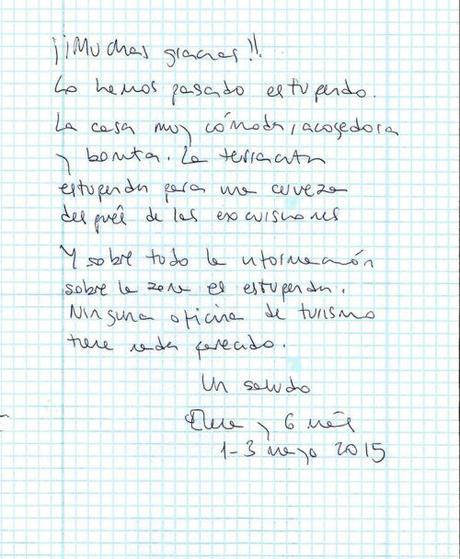 ¡¡Muchas gracias!!
Lo hemos pasado estupendo.
La casa muy cómoda, acogedora
y bonita. La terracita
estupenda para una cerveza
después de las excursiones
Y sobre todo la información
sobre la zona es estupenda.
Ninguna oficina de turismo
tiene nada parecido.
Un saludo
y 6 más
1-3 mayo 2015